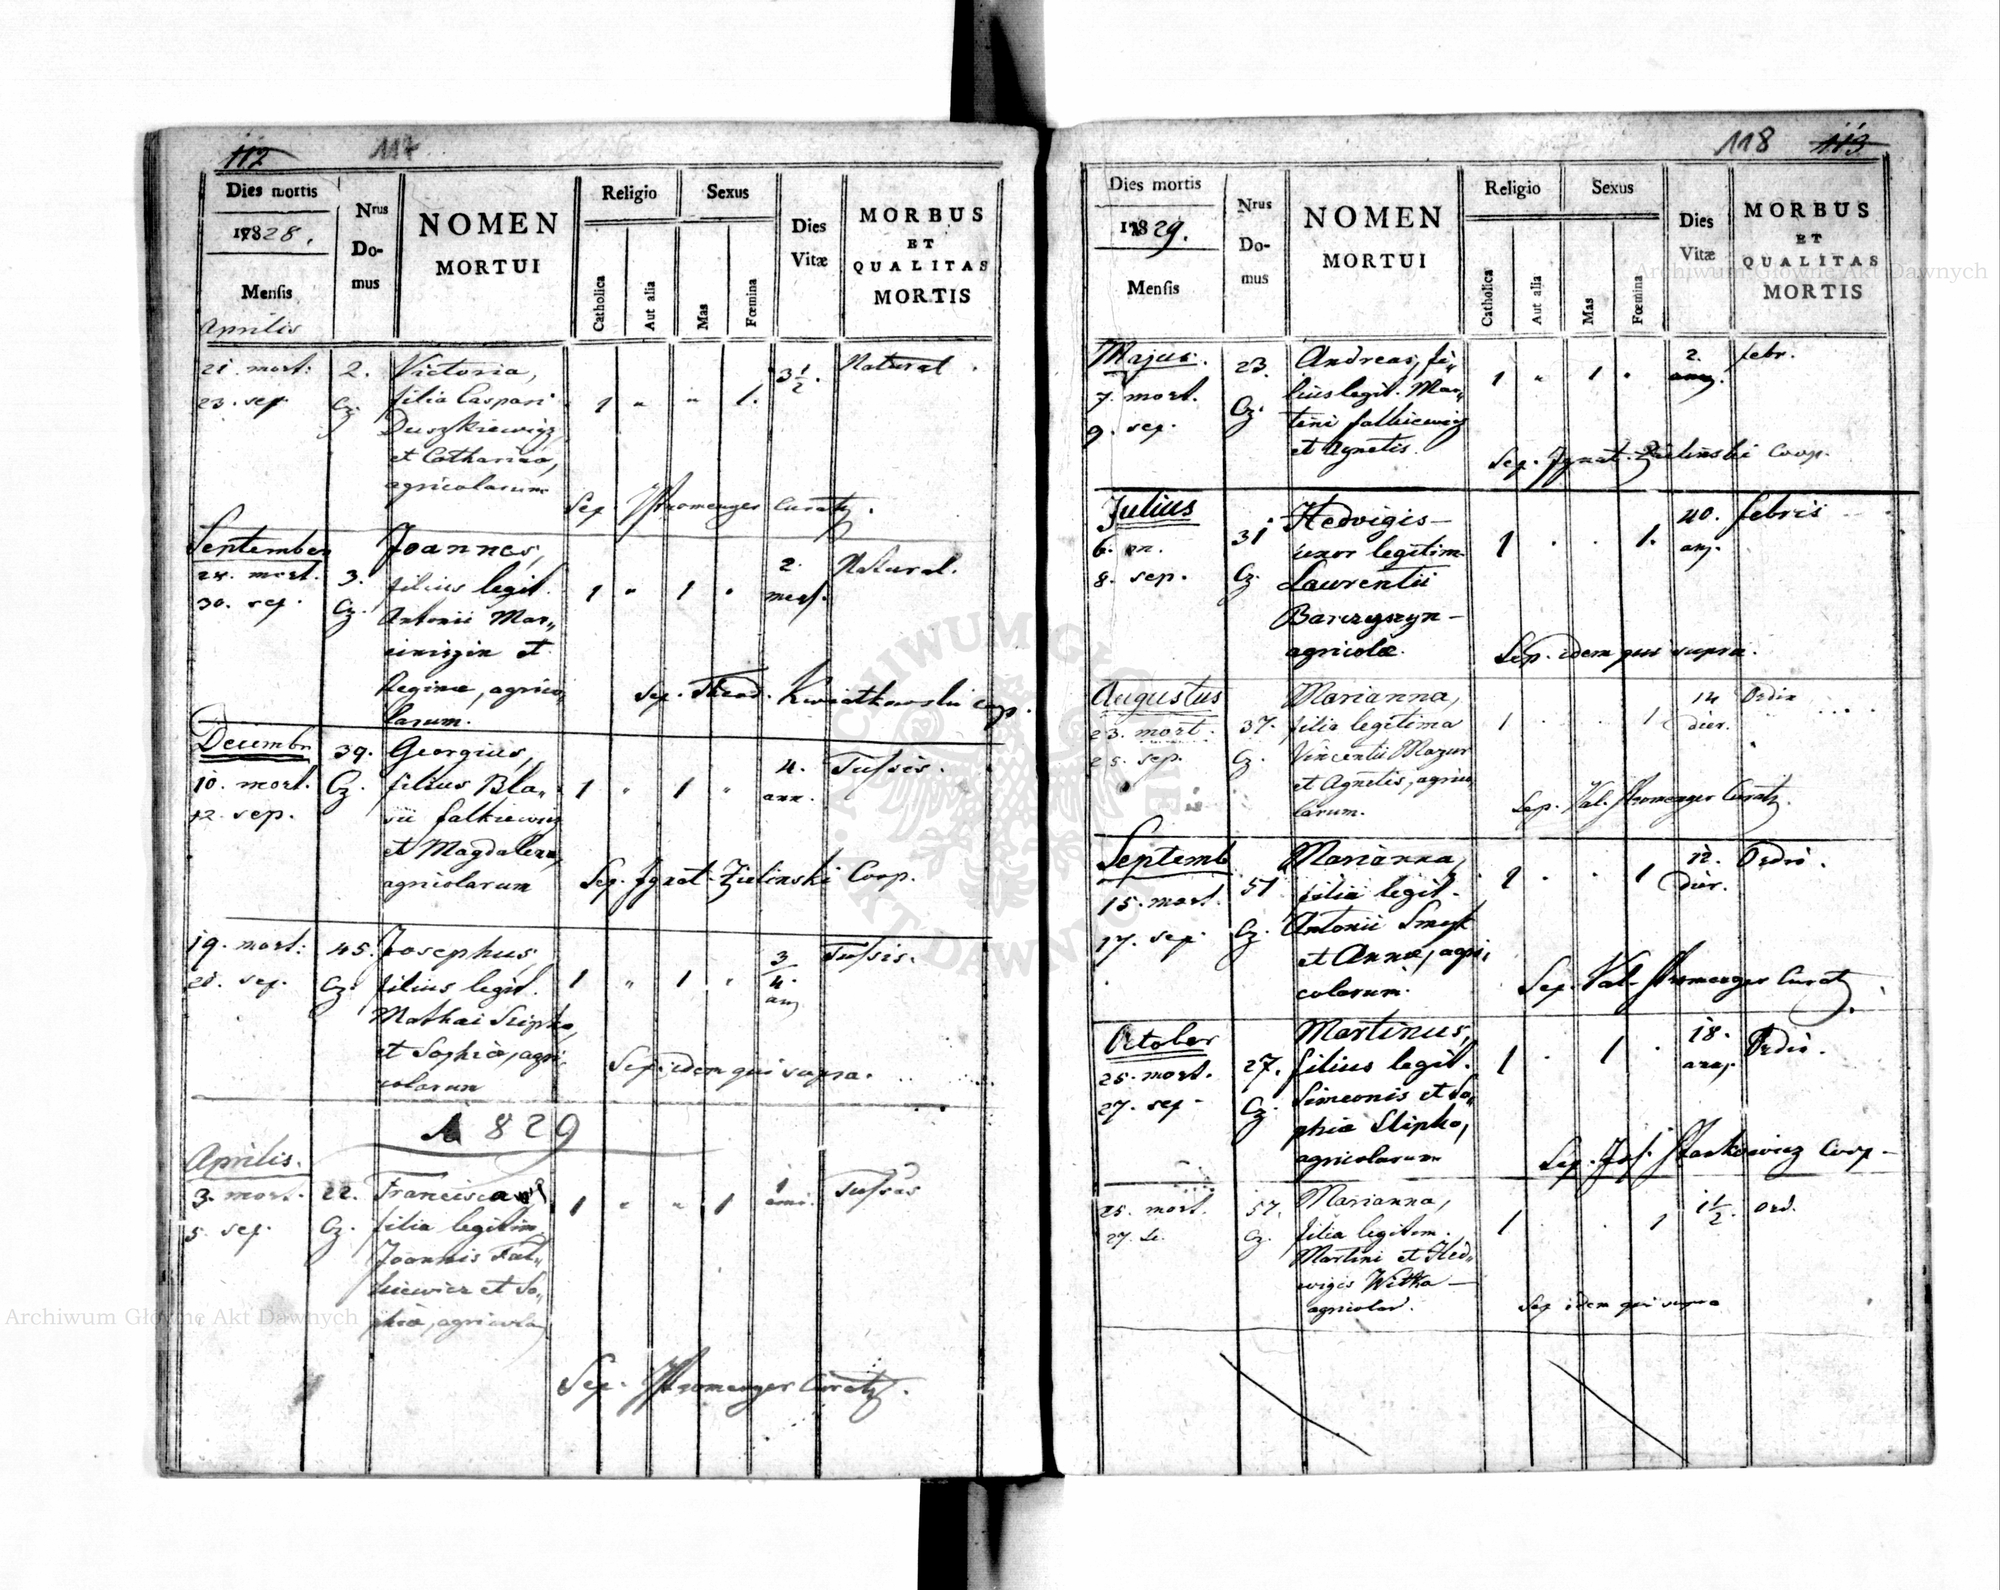 112 117
Dies mortis
1828.
Mensis
Aprilis
Nrus
Do-
mus
NOMEN
MORTUI
Religio
Catholica
Aut alia
Sexus
Mas
Fœmina
Dies
Vitæ
MORBUS
ET
QUALITAS
MORTIS
21. mort: 2. Victoria, 1 " " 1. 3½. Natural.
23. sep. Cz. filia Caspari
Duszkiewicz
et Catharinæ,
agricolarum
Sep. Stromenger Curatq.
September Joannes,
28. mort. 3. filius legit. 1 " 1 " 2. Natural.
30. sep. Cz. Antonii Mar„ mens.
ciniszin et
Reginæ, agrico„
larum.
Sep. Thead. Kwiatkowski Coop.
Decembr 39. Georgius,
10. mort. Cz. filius Bla„ 1 " 1 " 4. Tussis.
12. sep. sii Falkiewicz ann.
et Magdalena,
agricolarum
Sep. Ignat. Zielinski Coop.
19. mort: 45. Josephus, 3 Tussis.
20. sep. Cz. filius legit. 1 " 1 " 4.
Mathæi Slipko, anj
et Sophiæ, agri„
colarum
Sep. idem qui supra.
1829
Aprilis.
3. mort. 22. Francisca 1 " " 1 1 Tussis
5. sep. Cz. filia legitim. anni.
Joannis Fal„
kiewicz et So„
phiæ, agricola
Sep. Stromenger Curatq.
118 113
Dies mortis
1829.
Mensis
Nrus
Do-
mus
NOMEN
MORTUI
Religio
Catholica
Aut alia
Sexus
Mas
Fœmina
Dies
Vitæ
MORBUS
ET
QUALITAS
MORTIS
Majus. 23. Andreas, fi„ 1 " 1 . 2. febr.
7. mort. Cz. lius legit. Mar„ anj.
9. sep. tini Falkiewicz
et Agnetis.
Sep. Ignat. Zielinski Coop.
Julius 31 Hedvigis 1 . . 1. 40. febris
6. m. uxor legitim. anj.
8. sep. Cz. Laurentii
Barczyszyn
agricolæ.
Sep. idem qui supra.
Augustus Marianna, 14 Ordin
23. mort. 37. filia legitima 1 . . 1 dier.
25. sep. Cz. Vincentii Mazur
et Agnetis, agrico„
larum.
Sep. Val. Stromenger Curatq.
Septemb Marianna, 12. Ordi.
15. mort. 51 filia legit. 1 . . 1 dier.
17. sep. Cz. Antonii Smyk
et Annæ, agri„
colarum.
Sep. Val. Stromenger Curatq.
October Martinus, 18. Ordi.
25. mort. 27. filius legit. 1 . 1 . anj.
27. sep. Cz. Simeonis et So„
phiæ Slipko,
agricolarum
Sep. Jos. Stankiewicz Coop.
25. mort. 57. Marianna, 1½. Ord.
27. Se. Cz. filia legitim. 1 . . 1
Martini et Hed„
wigis Witka
agricolar.
Sep idem qui supra
Archiwum Główne Akt Dawnych
Archiwum Główne Akt Dawnych
ARCHIWUM GŁÓWNE AKT DAWNYCH